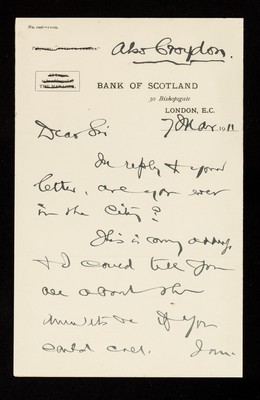 Also Croydon.
THE MANAGER.
BANK OF SCOTLAND
30 Bishopsgate
LONDON, E.C.
7 Mar. 1911
Dear Sir
In reply to your
letter, are you ever
in the City?
This is my address,
& I could tell you
all about the
if you
could call. I am